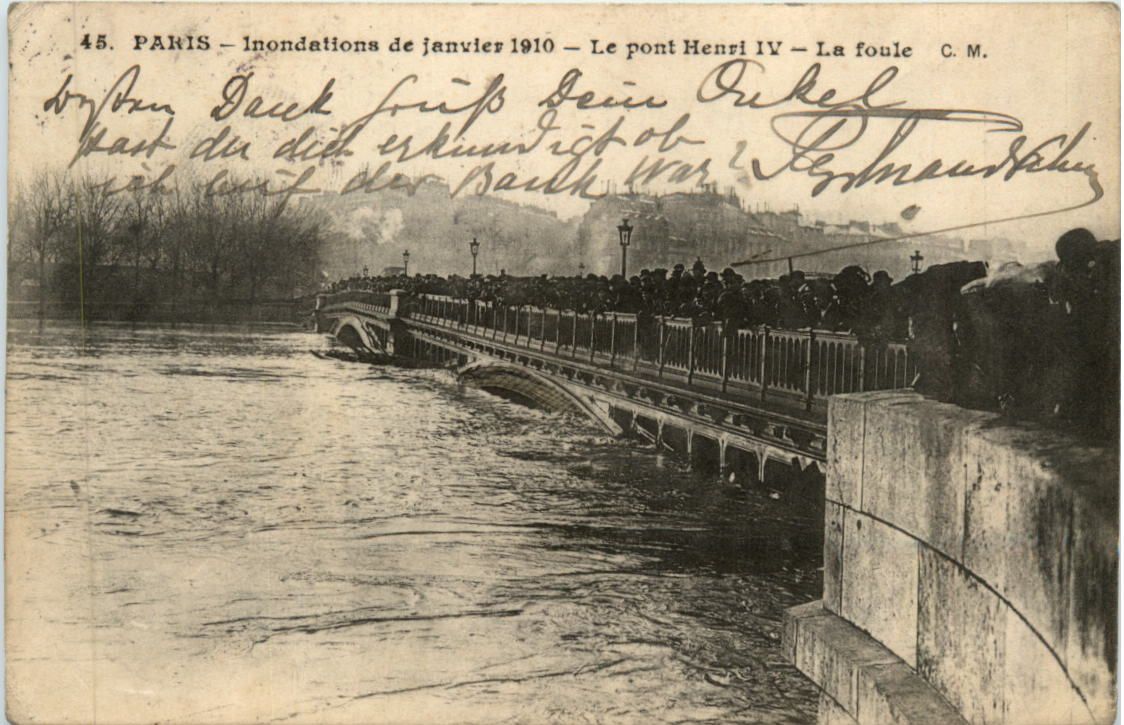 45. PARIS – Inondations de janvier 1910 – Le pont Henri IV – La foule C. M.
Dank Gruß Dein Onkel
Hast du dich erkundigt ob Ferdinand
ich mit der Bank war?